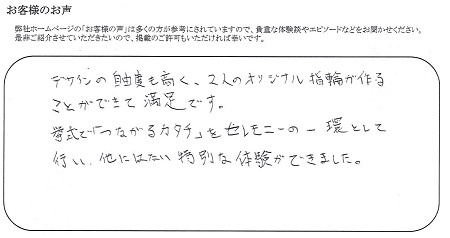 お客様のお声
弊社ホームページの「お客様の声」は多くの方が参考にされていますので、貴重な体験談やエピソードなどをお聞かせください。
是非ご紹介させていただきたいので、掲載のご許可もいただければ幸いです。
デザインの自由度も高く、2人のオリジナル指輪が作る
ことができて満足です。
挙式で「つながるカタチ」をセレモニーの一環として
行い、他にはない特別な体験ができました。